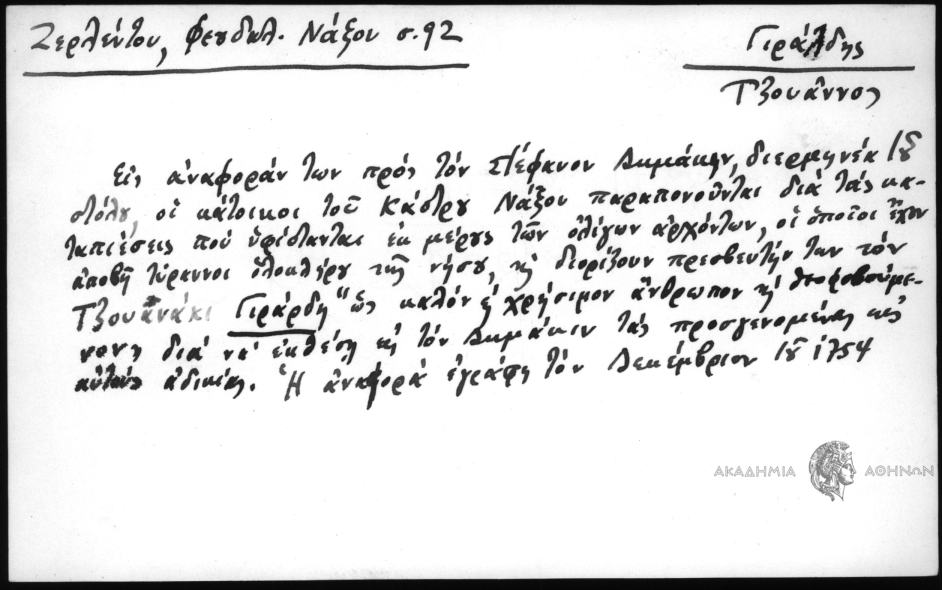 Ζερλέντου, Φεουδαλ. Νάξου σ. 92
Γιράλδης
Τζουάννος
Εἰς ἀναφοράν των πρός τόν Στέφανον Δημάκην, διερμηνέα τοῦ
στόλου, οἱ κάτοικοι τοῦ Κάστρου Νάξου παραπονοῦνται διά τάς κα-
ταπιέσεις πού ὑφίστανται ἐκ μέρους τῶν ὀλίγων ἀρχόντων, οἱ ὁποῖοι ἔχουν
ἀποβῆ τύραννοι ὁλοκλήρου τῆς νήσου, κ διορίζουν πρεσβευτήν των τόν
Τζουανάκι Γιράρδη "ὡς καλόν κ χρήσιμον ἄνθρωπον κ θεοφοβούμε-
νον" διά νά ἐκθέση εἰς τόν Δημάκην τάς προσγενομένας εἰς
αὐτούς ἀδικίας. Ἡ ἀναφορά ἐγράφη τόν Δεκέμβριον τοῦ 1754
ΑΚΑΔΗΜΙΑ ΑΘΗΝΩΝ